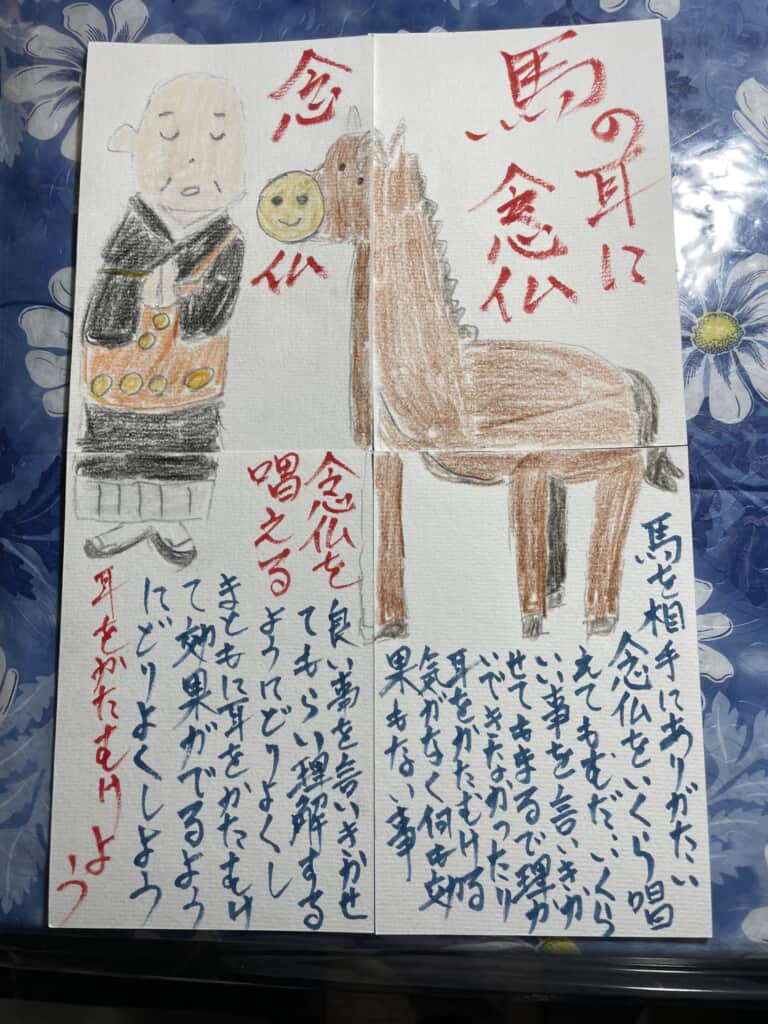 馬の耳に
念仏
念
仏
馬を相手にありがたい
念仏をいくら唱
えてもむだ‥いくら
いい事を言いきか
せてもまるで理カ
いできなかったり
耳をかたむける
気がなく何も効
果もない事
念仏を
唱える
良い事を言いきかせ
てもらい理解する
ようにどりよくし
まともに耳をかたむけ
て効果がでるよう
にどりよくしよう
耳をかたむけよう